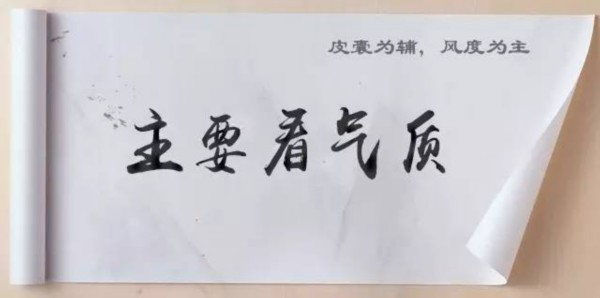 皮囊为辅，风度为主
主要看气质